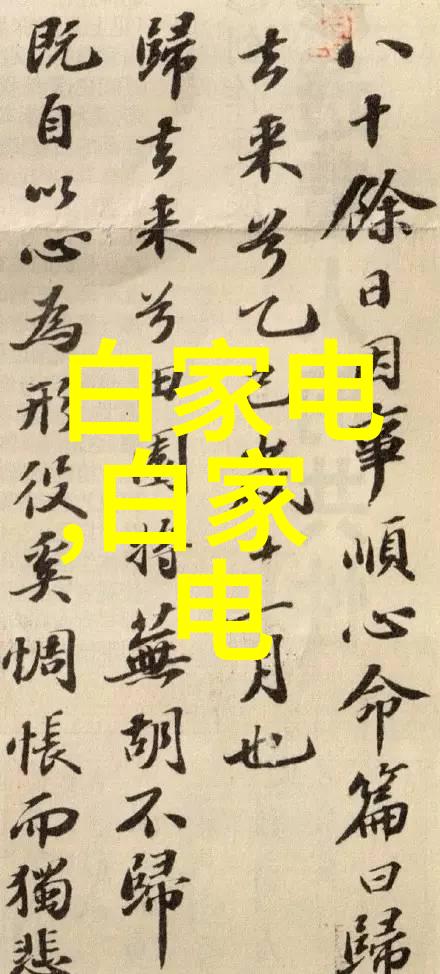 八十餘日因事順心命篇曰歸
去来兮乙巳歲十一月也
歸去来兮田園将蕪胡不歸
既自以心為形役奚惆悵而獨悲
白家电
,白家
电